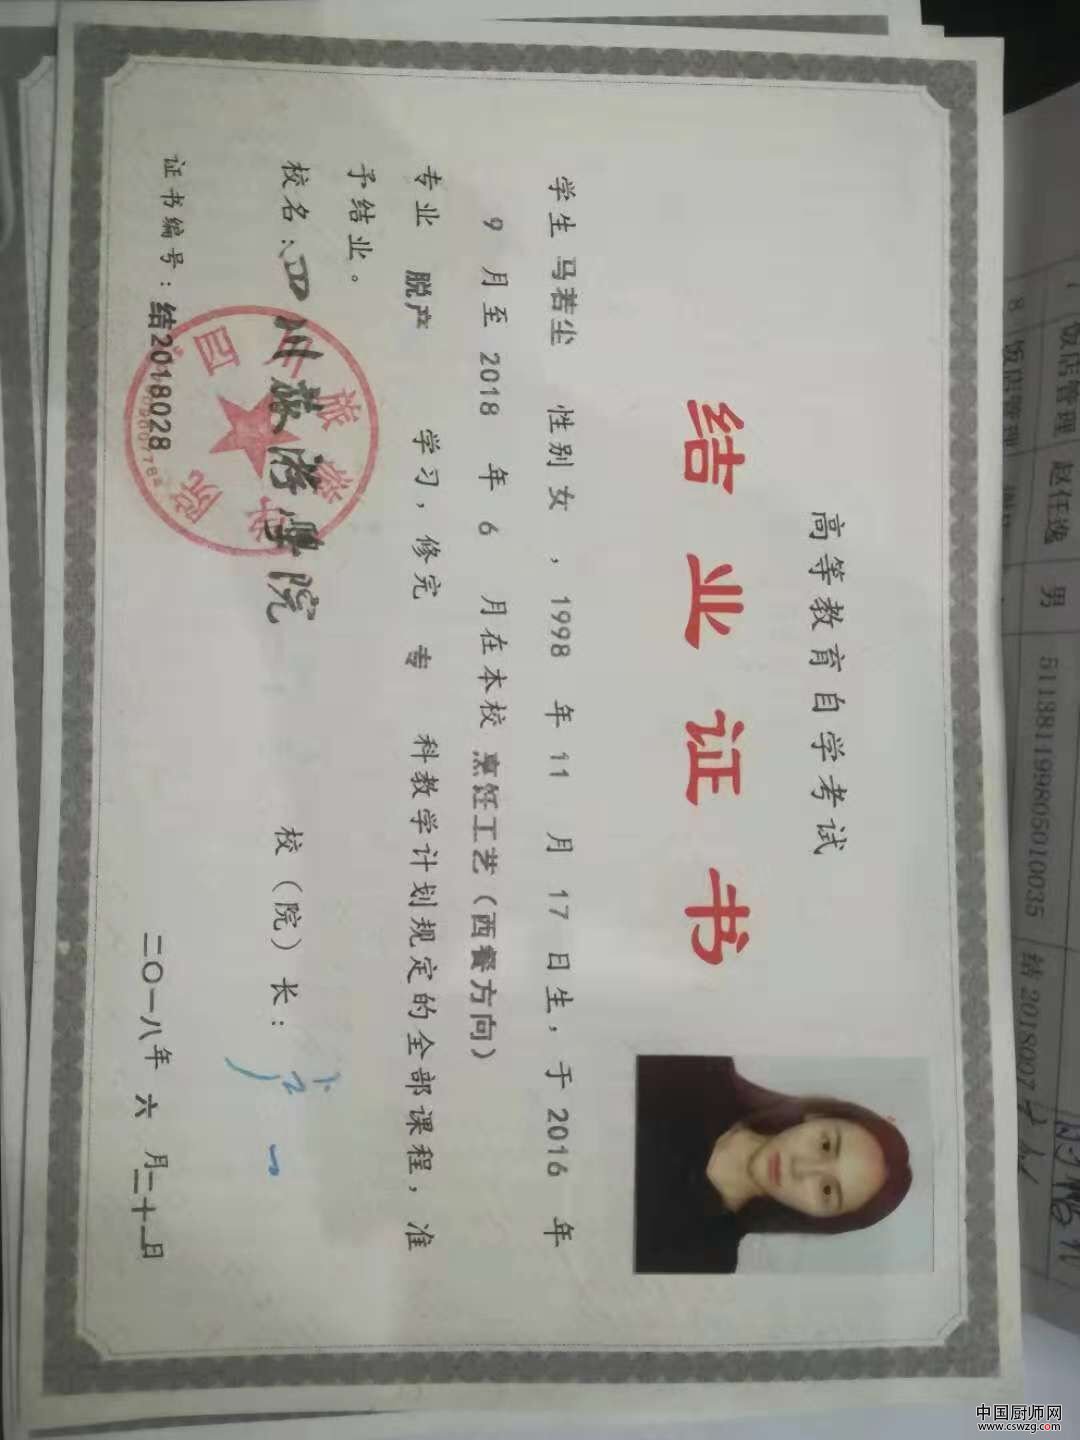 高等教育自学考试
结业证书
学生 马若尘 性别 女 , 1998 年 11 月 17 日生, 于 2016 年
9 月至 2018 年 6 月在本校 烹饪工艺（西餐方向）
专业 脱产 学习, 修完 专 科教学计划规定的全部课程, 准
予结业。
校名: 四川旅游学院 校（院）长:
证书编号: 结2018028 二〇一八年 六 月二十一日
7 饭店管理 赵任逸 男 511381199805010035 结2018007
8 饭店管理
中国厨师网
www.cswzg.com